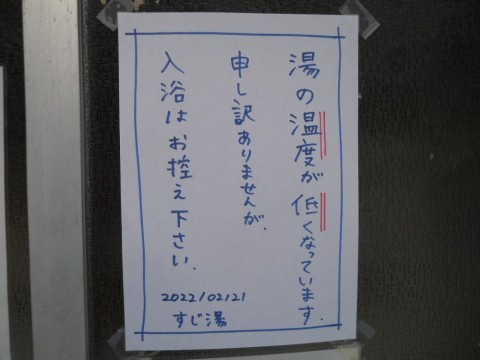 湯の温度が低くなっています.
申し訳ありませんが.
入浴はお控え下さい.
2022/02/21
すじ湯